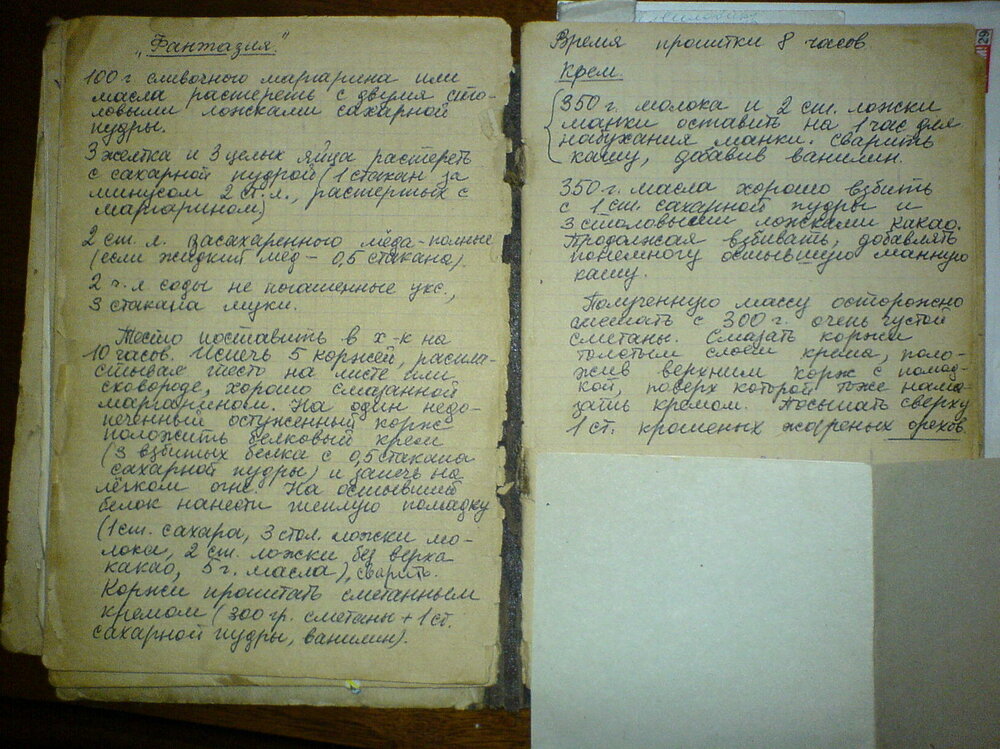 „Фантазия“
100 г сливочного маргарина или
масла растереть с двумя сто-
ловыми ложками сахарной
пудры.
3 желтка и 3 целых яйца растереть
с сахарной пудрой (1 стакан за
минусом 2 ст. л., растертых с
маргарином)
2 ст. л. засахаренного мёда - полные
(если жидкий мёд - 0,5 стакана).
2 ч. л соды не погашенные укс.,
3 стакана муки.
Тесто поставить в х-к на
10 часов. Испечь 5 коржей, распла-
стывая тесто на листе или
сковороде, хорошо смазанной
маргарином. На один недо-
печенный остуженный корж
положить белковый крем
(3 взбитых белка с 0,5 стакана
сахарной пудры) и запечь на
лёгком огне. На остывший
белок нанести теплую помадку
(1 ст. сахара, 3 стол. ложки мо-
лока, 2 ст. ложки без верха
какао, 5 г. масла), сварить.
Коржи пропитать сметанным
кремом (300 гр. сметаны + 1 ст.
сахарной пудры, ванилин).
Время пропитки 8 часов
Крем.
350 г. молока и 2 ст. ложки
манки оставить на 1 час для
набухания манки. Сварить
кашу, добавив ванилин.
350 г. масла хорошо взбить
с 1 ст. сахарной пудры и
3 столовыми ложками какао.
Продолжая взбивать, добавлять
понемногу остывшую манную
кашу.
Полученную массу осторожно
смешать с 300 г. очень густой
сметаны. Смазать коржи
толстым слоем крема, поло-
жив верхним корж с помад-
кой, поверх которой тоже нама-
зать кремом. Посыпать сверху
1 ст. крошеных жареных орехов
29